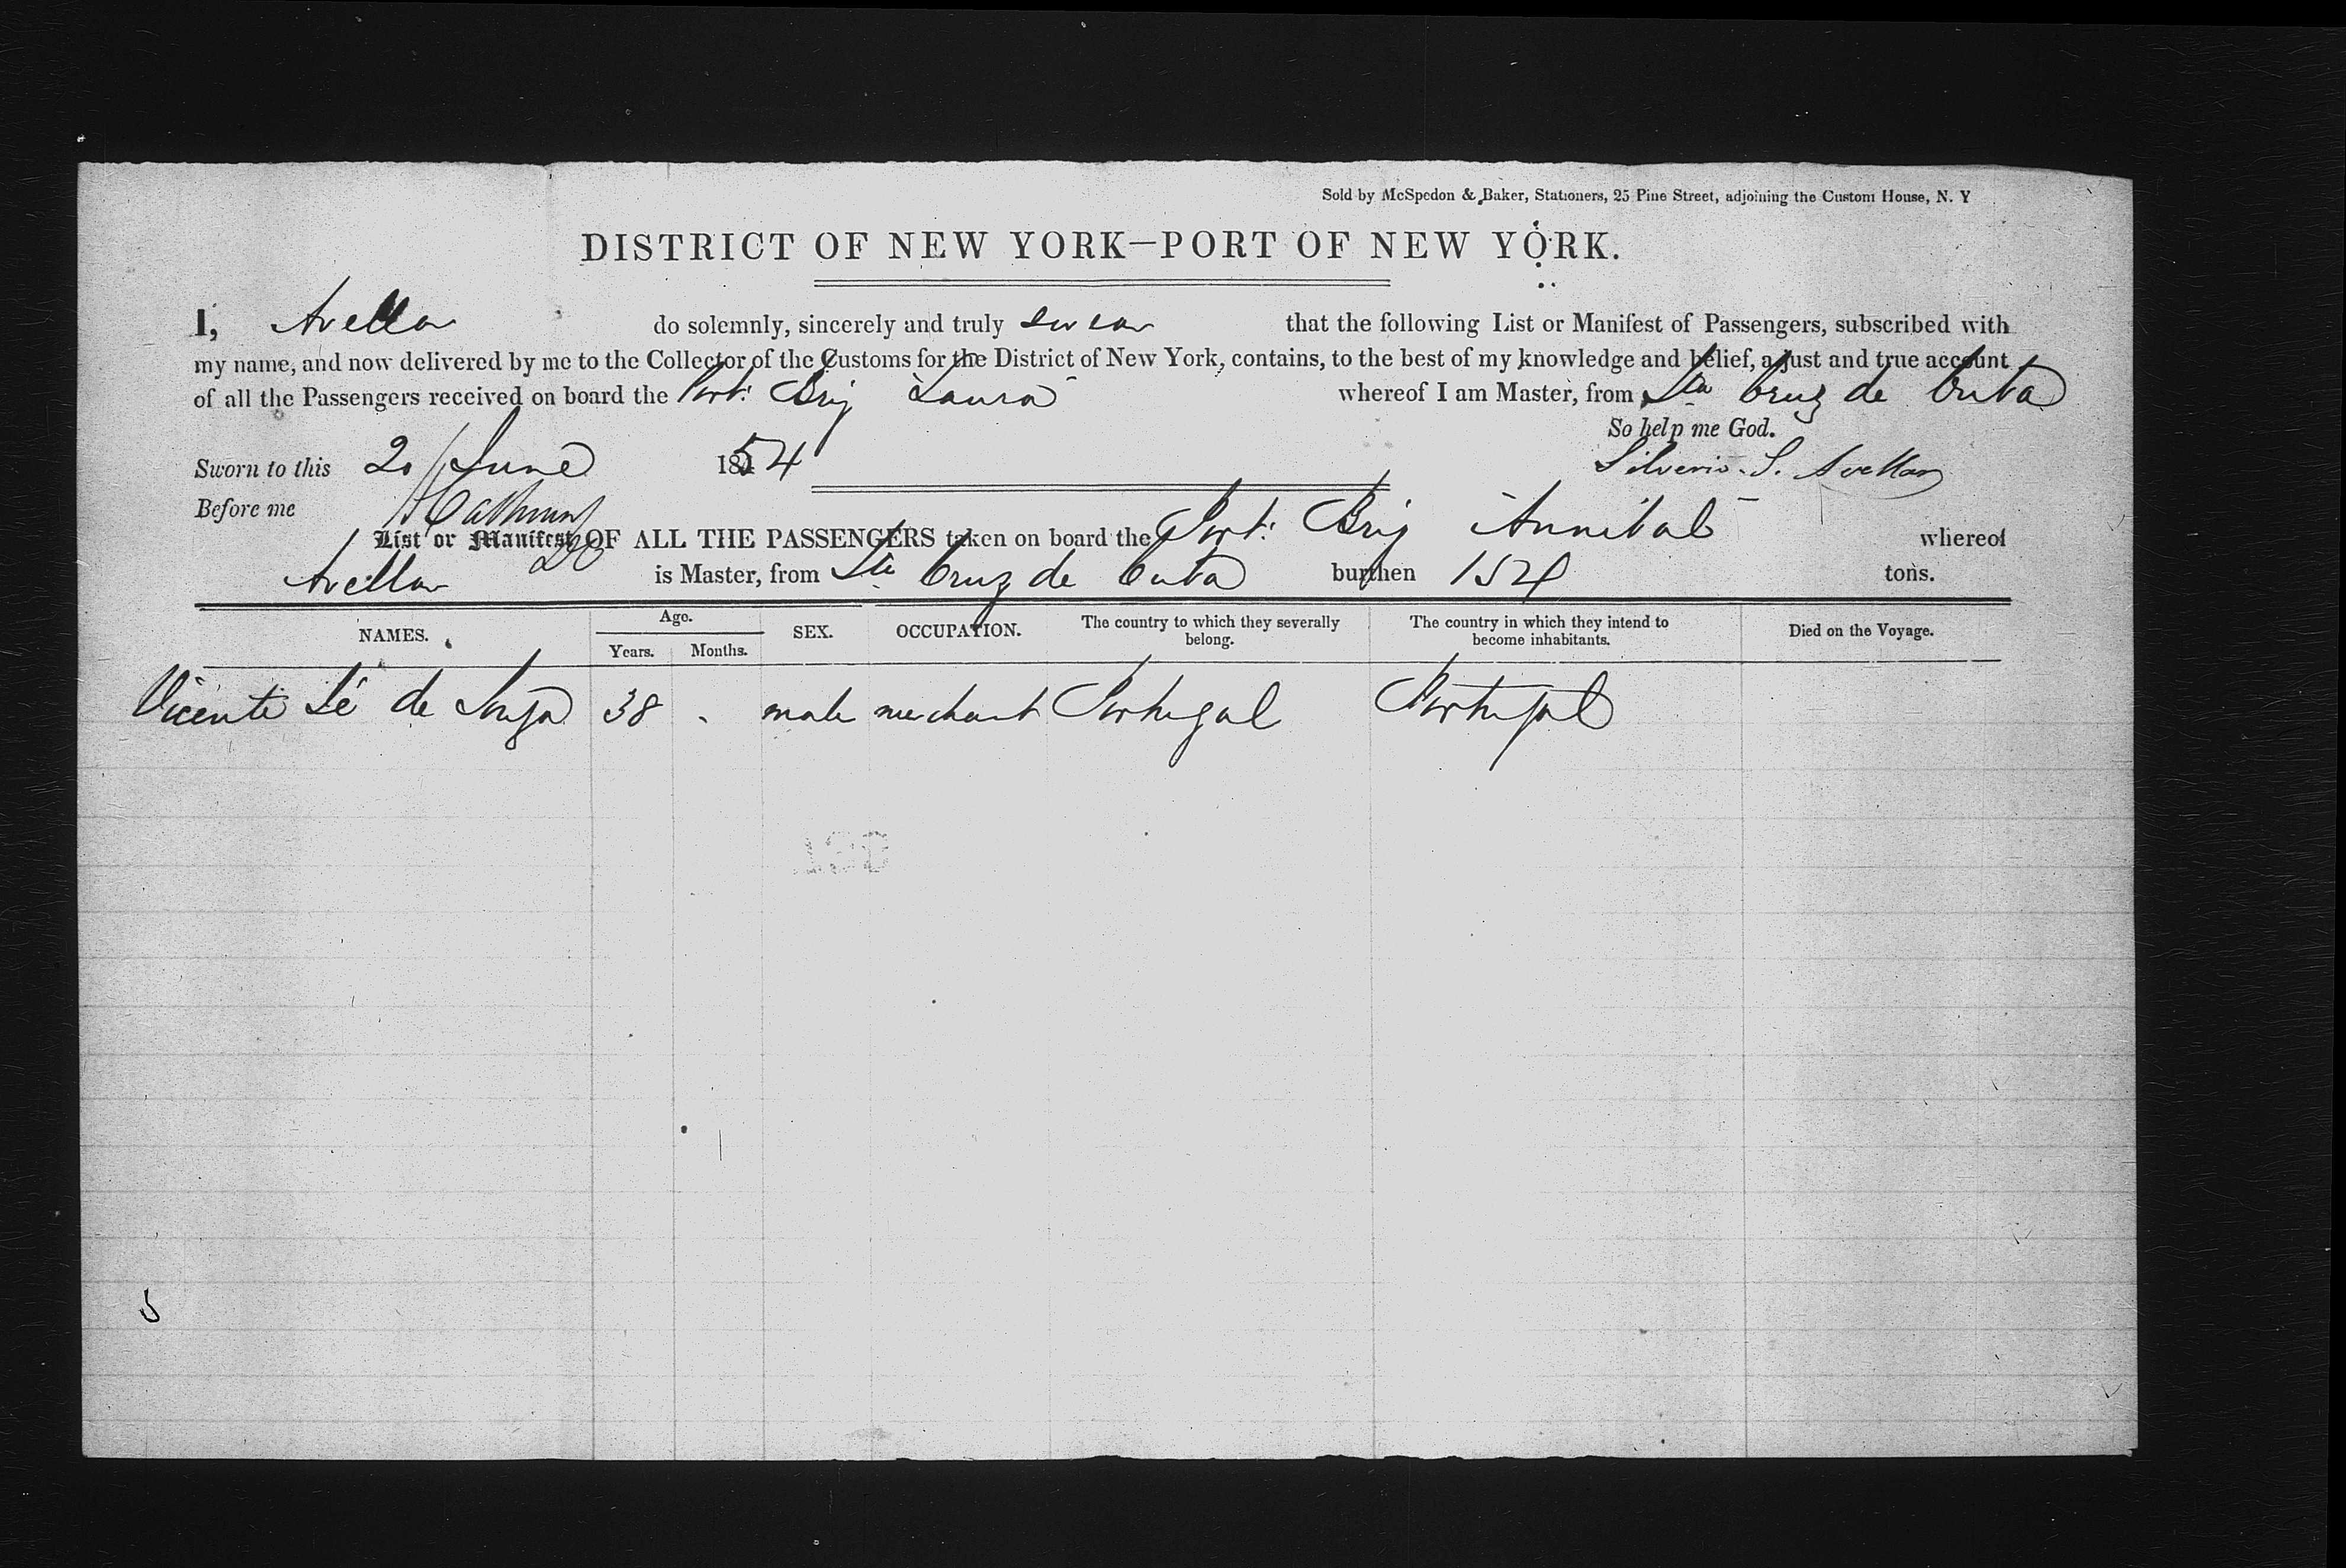 Sold by McSpedon & Baker, Stationers, 25 Pine Street, adjoining the Custom House, N. Y
DISTRICT OF NEW YORK—PORT OF NEW YORK.
I, Avellar do solemnly, sincerely and truly swear that the following List or Manifest of Passengers, subscribed with
my name, and now delivered by me to the Collector of the Customs for the District of New York, contains, to the best of my knowledge and belief, a just and true account
of all the Passengers received on board the Port: Brig Laura whereof I am Master, from Sta Cruz de Cuba
So help me God.
Sworn to this 20 June 1854 Silverio S. Avellar
Before me
List or Manifest OF ALL THE PASSENGERS taken on board the Port: Brig "Annibal" whereof
Avellar is Master, from Sta Cruz de Cuba burthen 154 tons.
NAMES. Age. Years. Months. SEX. OCCUPATION. The country to which they severally belong. The country in which they intend to become inhabitants. Died on the Voyage.
Vicente Sé de Souza 38 male merchant Portugal Portugal